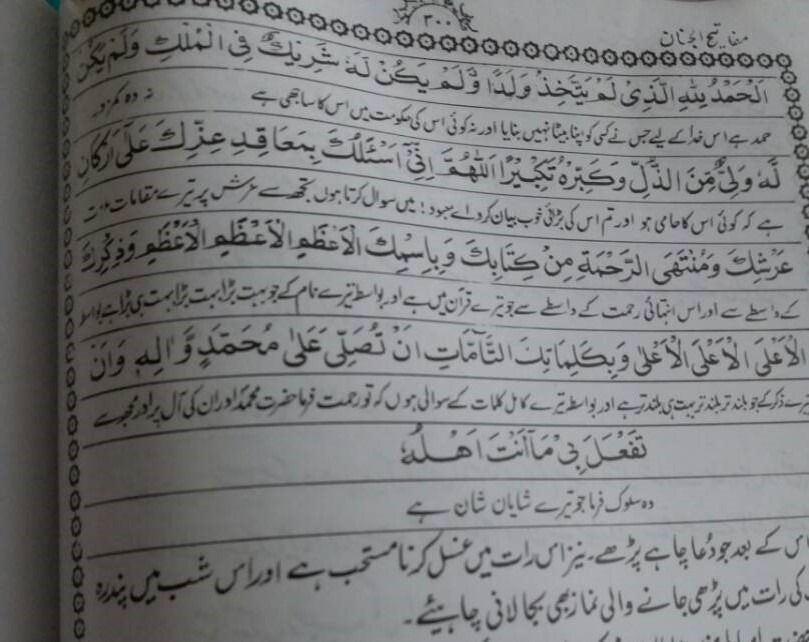 ۳۰۰
مفاتیح الجنان
اَلْحَمْدُ لِلّٰهِ الَّذِىْ لَمْ يَتَّخِذْ وَلَدًا وَّلَمْ يَكُنْ لَهٗ شَرِيْكٌ فِى الْمُلْكِ وَلَمْ يَكُنْ
حمد ہے اس خدا کے لیے جس نے کسی کو اپنا بیٹا نہیں بنایا اور نہ کوئی اس کی حکومت میں اس کا ساجھی ہے نہ وہ کمزور
لَّهٗ وَلِىٌّ مِّنَ الذُّلِّ وَكَبِّرْهُ تَكْبِيْرًا اَللّٰهُمَّ اِنِّىْٓ اَسْئَلُكَ بِمَعَاقِدِ عِزِّكَ عَلٰٓى اَرْكَانِ
ہے کہ کوئی اس کا حامی ہو اور تم اس کی بڑائی خوب بیان کرو اے معبود! میں سوال کرتا ہوں تجھ سے عرش پر تیرے مقامات
عَرْشِكَ وَمُنْتَهَى الرَّحْمَةِ مِنْ كِتَابِكَ وَبِاسْمِكَ الْاَعْظَمِ الْاَعْظَمِ الْاَعْظَمِ وَذِكْرِكَ
کے واسطے سے اور اس انتہائی رحمت کے واسطے سے جو تیرے قرآن میں ہے اور بواسطہ تیرے نام کے جو بہت بڑا بہت بڑا بہت ہی بڑا ہے بواسطہ
الْاَعْلَى الْاَعْلَى الْاَعْلٰى وَبِكَلِمَاتِكَ التَّآمَّاتِ اَنْ تُصَلِّىَ عَلٰى مُحَمَّدٍ وَّاٰلِهٖ وَاَنْ
تیرے ذکر کے جو بلند تر بلند تر بہت ہی بلند تر ہے اور بواسطہ تیرے کامل کلمات کے سوالی ہوں کہ تو رحمت فرما حضرت محمدؐ اور ان کی آل پر اور مجھ سے
تَفْعَلَ بِىْ مَآ اَنْتَ اَهْلُهٗ
وہ سلوک فرما جو تیرے شایان شان ہے
اس کے بعد جو دُعا چاہے پڑھے۔ نیز اس رات میں غسل کرنا مستحب ہے اور اس شب میں پندرہ
کی رات میں پڑھی جانے والی نماز بھی بجا لانی چاہیئے۔